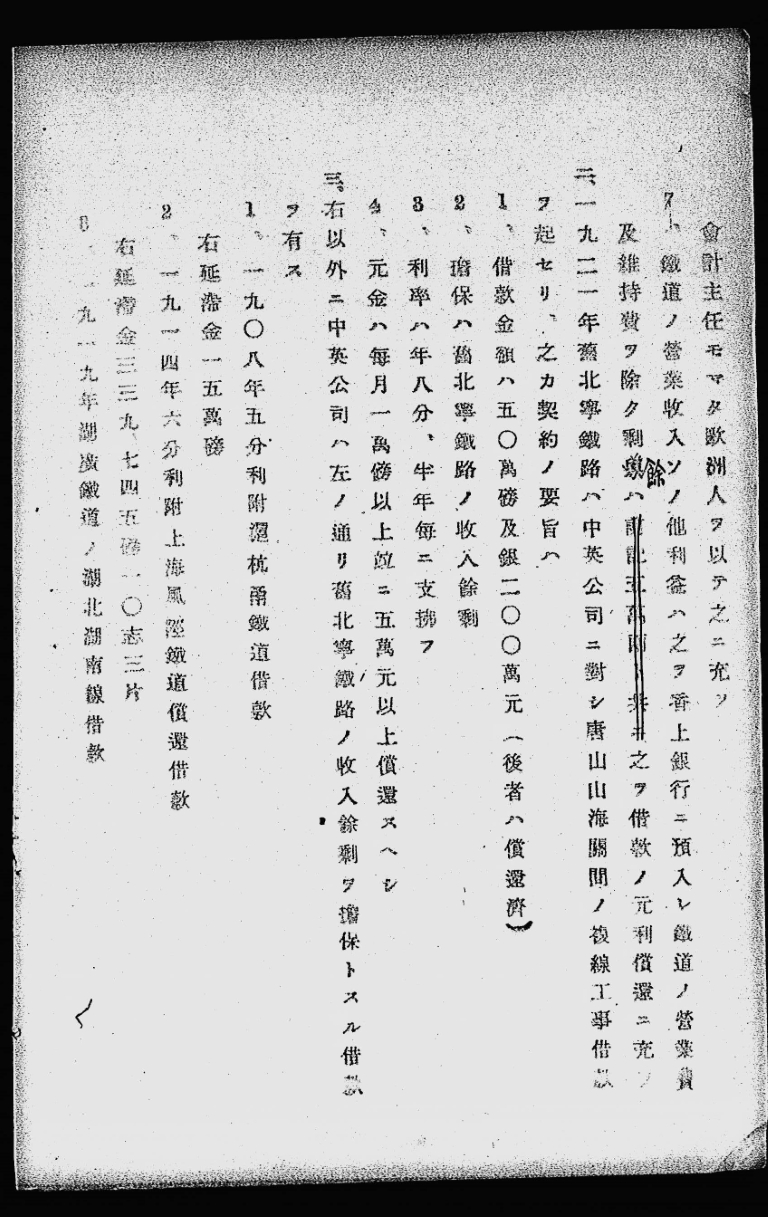 會計主任モマタ歐洲人ヲ以テ之ニ充ツ
7、鐵道ノ營業收入ソノ他利益ハ之ヲ香上銀行ニ預入レ鐵道ノ營業費
及維持費ヲ除ク剩餘ハ之ヲ借款ノ元利償還ニ充ツ
二、一九二一年舊北寧鐵路ハ中英公司ニ對シ唐山山海關間ノ複線工事借款
ヲ起セリ、之カ契約ノ要旨ハ
1、借款金額ハ五〇萬磅及銀二〇〇萬元（後者ハ償還濟）
2、擔保ハ舊北寧鐵路ノ收入餘剩
3、利率ハ年八分、半年每ニ支拂フ
4、元金ハ每月一萬磅以上竝ニ五萬元以上償還スヘシ
三、右以外ニ中英公司ハ左ノ通リ舊北寧鐵路ノ收入餘剩ヲ擔保トスル借款
ヲ有ス
1、一九〇八年五分利附滬杭甬鐵道借款
右延滯金一五萬磅
2、一九一四年六分利附上海風涇鐵道償還借款
右延滯金三三九、七四五磅一〇志三片
3、一九一九年湖廣鐵道ノ湖北湖南線借款